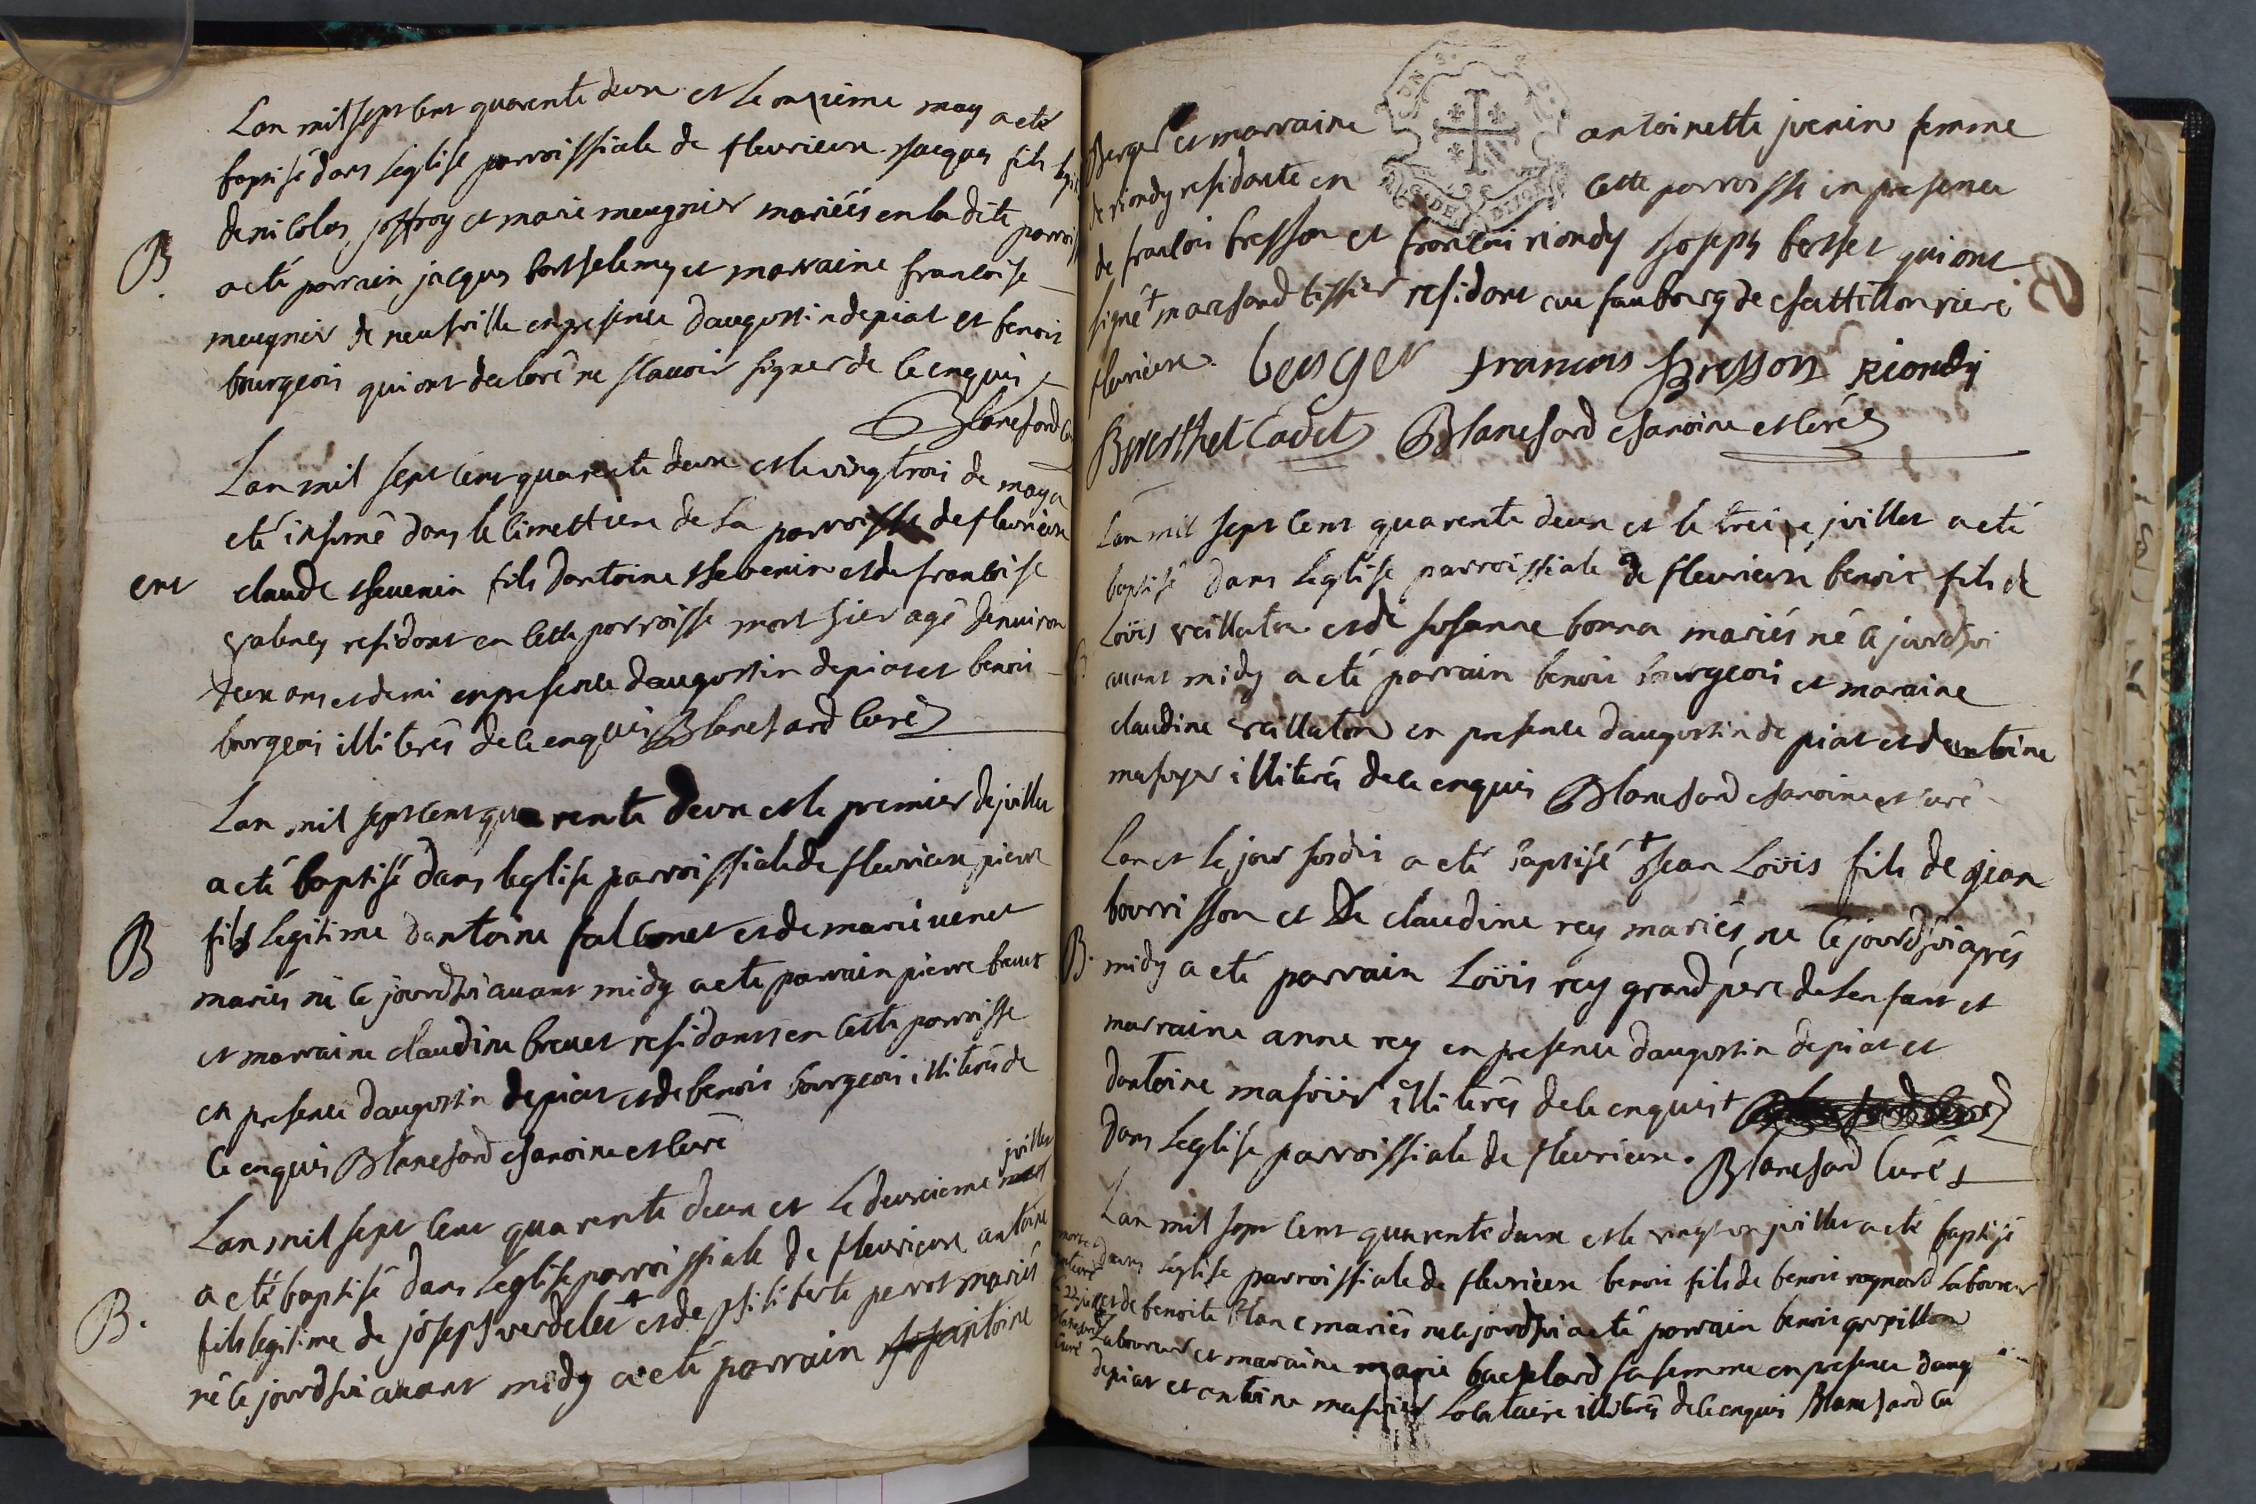 Lan mil sept cent quarente deux et le onzieme may a eté
baptisé dans leglise parroissiale de fleurieux jacques fils
de nicolas joffroy et marie meugnier mariéés en la dite parroiss
B
a eté parrain jacques barthelemy et marraine francoise
meugnier de neufville en presence daugustin depiat et benoit
bourgeois qui ont declaré ne scauoir signer de ce enquis
Blanchard
Lan mil sept cent quarente deux et le vingtrois de may a
eté inhumé dans le cimettiere de la parroisse de fleurieux
ent
claude thevenin fils dantoine thevenin et de francoise
residant en cette parroisse mort hier agé denuiron
deux ans et demi en presence daugustin depiat et benoit
bourgeois illiterés de ce enquis Blanchard Curé
Lan mil sept cent quarente deux et le premier de juillet
a eté baptisé dans leglise parroissiale de fleurieux pierre
B
fils legitime dantoine falconet et de marie venet
mariés né ce jourdhui auant midy a eté parrain pierre breuet
et marraine claudine breuet residants en cette parroisse
en presence daugustin depiat et de benoit bourgeois illiterés de
ce enquis Blanchard chanoine et Curé
juillet
Lan mil sept cent quarente deux et le deuxieme
a eté baptisé dans leglise parroissiale de fleurieux antoine
B.
fils legitime de joseph verdelet + et de perrot mariés
né ce jourdhui auant midy a eté parrain antoine
Berger et marraine antoinette juenin femme
de riondy residante en cette parroisse en presence
de francois bresson et francois riondy joseph berthet qui ont
B
signé + marchand tissier resident au faubourg de chattillon riere
fleurieux. berger francois Bresson Riondy
Bererthet Cadet Blanchard chanoine et Curé
Lan mil sept cent quarente deux et le treize juillet a eté
baptisé dans leglise parroissiale de fleurieux benoit fils de
Loüis veillaton et de susanne bonna mariés né ce jourdhui
auant midy a eté parrain benoit bourgeois et maraine
claudine veillaton en presence daugustin de piat et dantoine
masoyer illiterés de ce enquis Blanchard chanoine et curé
Lan et le jour susdit a eté baptisé + jean Loüis fils de jean
bourrisson et De claudine rey mariés, né ce jourdhui aprés
B.
midy a eté parrain Loüis rey grand pere de lenfant et
marraine anne rey en presence daugustin depiat et
dantoine masoüier illiterés de ce enquis +
dans leglise parroissiale de fleurieux. Blanchard Curé
Lan mil sept cent quarente deux et le vingt un juillet a eté baptisé
dans leglise parroissiale de fleurieux benoit fils de benoit Laboureur
et de benoite blanc mariés né ce jourdhui a eté parrain benoit
Laboureur et maraine marie bachelard sa femme en presence daug
depiat et antoine masoüier illiterés de ce enquis Blanchard Cu